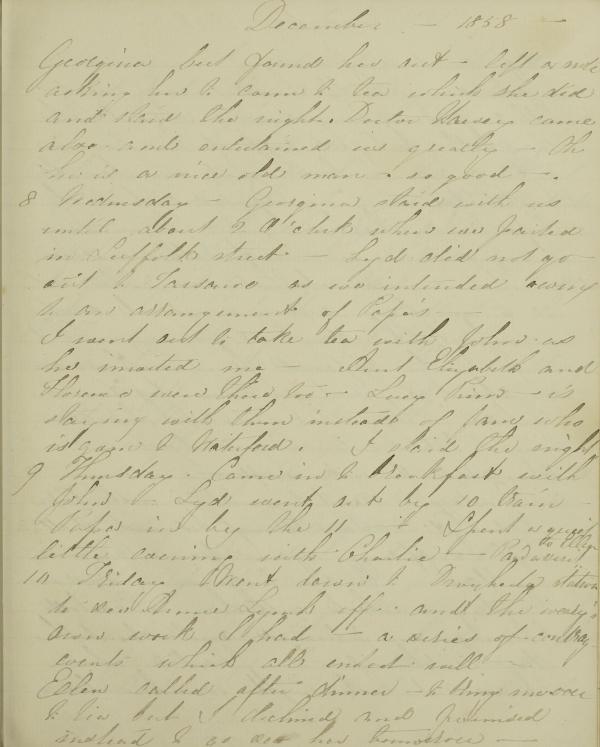 December - 1858 -
Georgina but found her out - left a note
asking her to come to tea which she did
and staid the night. Doctor Harvey came
also and entertained us greatly - Oh
he is a nice old man - so good -.
8 Wednesday - Georgina staid with us
until about 2 O'clock when we parted
in Suffolk street - Lyd did not go
out to as we intended owing
to an arrangement of Papa's -
I went out to take tea with John as
he invited me - Aunt Elizabeth and
Florence were there too - Lucy is
staying with them instead of Jane who
is gone to Waterford. I staid the night
9 Thursday - Came in to breakfast with
John - Lyd went out by 10 train -
Papa in by the 11 - Spent a quiet
little evening with Charlie -
10 Friday Went down to station
to see Anne Lynch off - and the
own work I had - a series of
events which all ended
Ellen called after dinner - to bring me over
to tea but I declined and promised
instead to go see her tomorrow -